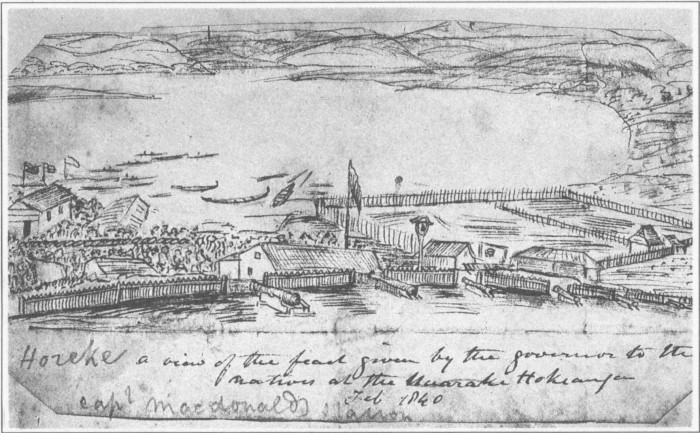 Horeke a view of the feast given by the governor to the
natives at the Huarake Hokianga
Feb 1840
capt macdonalds station